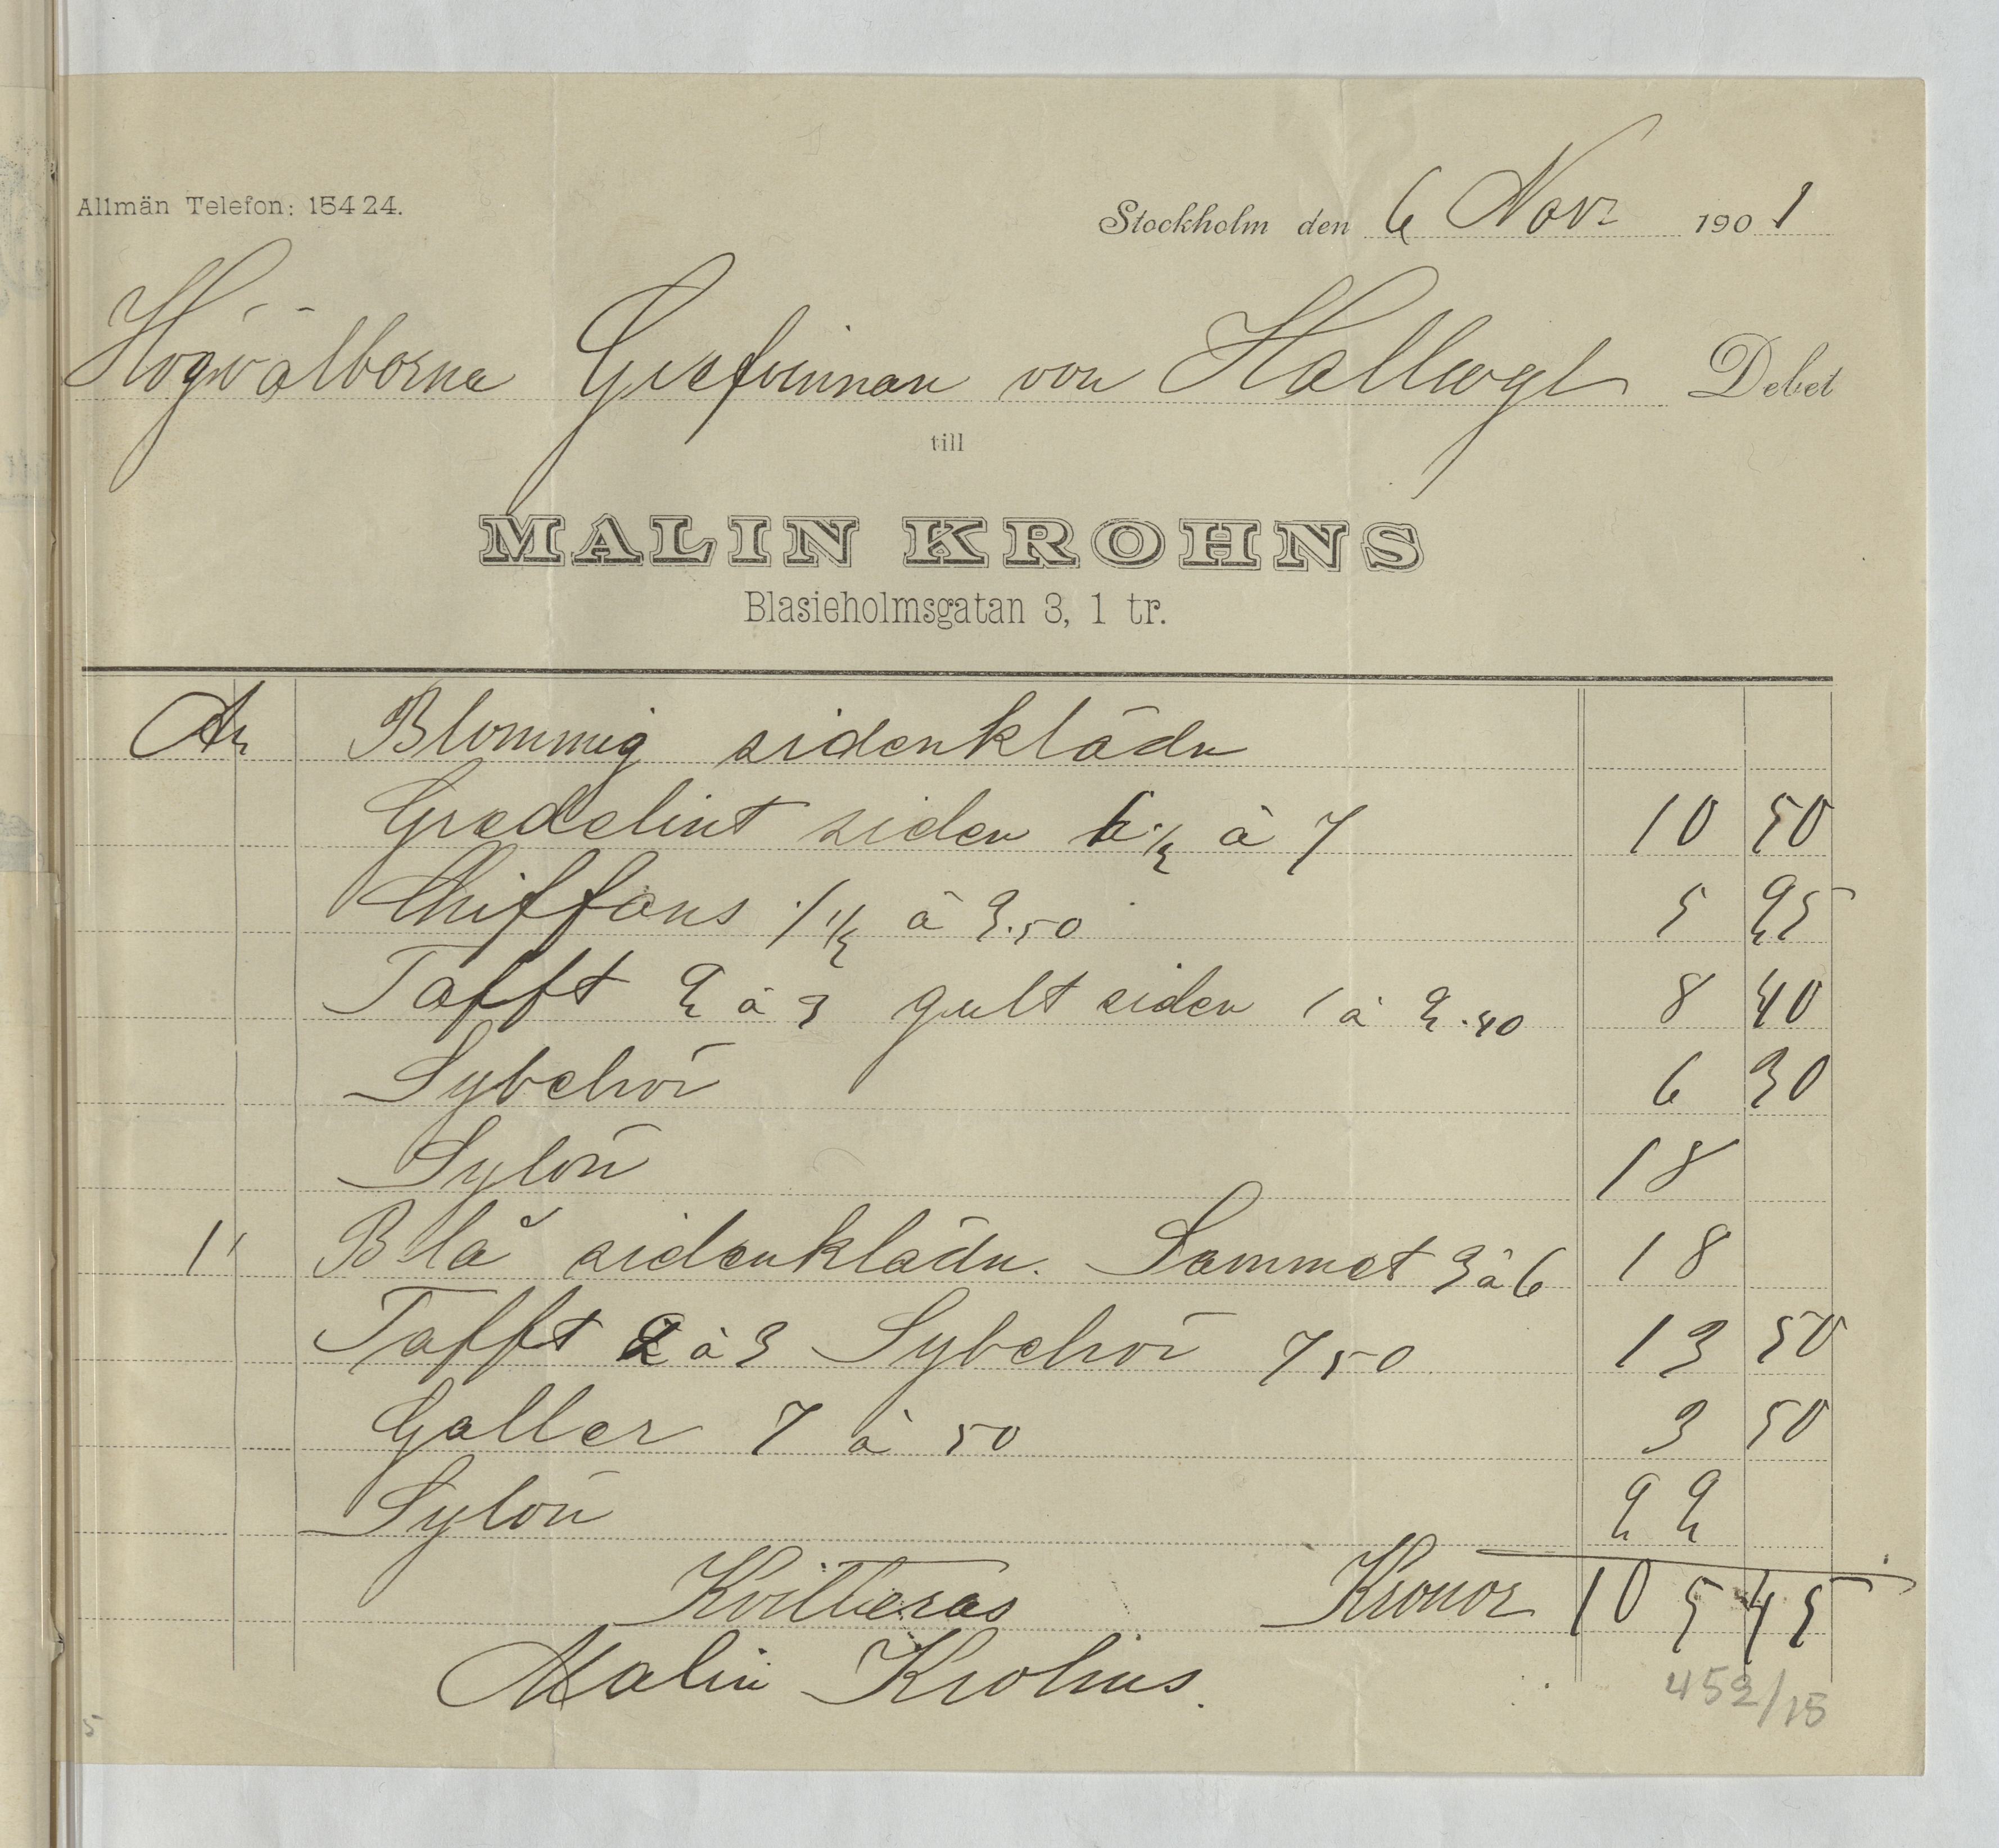 Allmän Telefon: 15424.
Stockholm den 6 Novr 1901
Högvälborna Grefvinnan von Hallwyl Debet
till
MALIN KROHNS
Blasieholmsgatan 3, 1 tr.
An Blommig sidenklädn
Gredelint siden 1 1/2 à 7 10 50
Chiffons 1 1/2 à 3.50 5 25
Tafft 2 à 3 gult siden 1 à 2.40 8 40
Sybehör 6 30
Sylön 18
1' Blå sidenklädn. Sammet 3 à 6 18
Tafft 2 à 3 Sybehör 7 50 13 50
Galler 7 à 50 3 50
Sylön 22
Kvitteras Kronor 105 45
Malin Krohns.
452/15
5